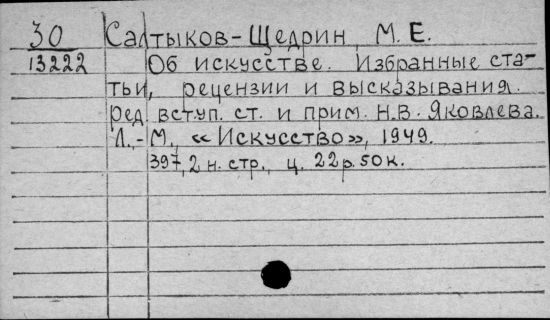 30 Салтыков-Щедрин, М. Е.
13222 Об искусстве. Избранные ста-
тьи, рецензии и высказывания.
ред. вступ. ст. и прим. Н.В. Яковлева.
Л.,-М., «Искусство», 1949.
397, 2 н. стр., ц. 22 р. 50 к.